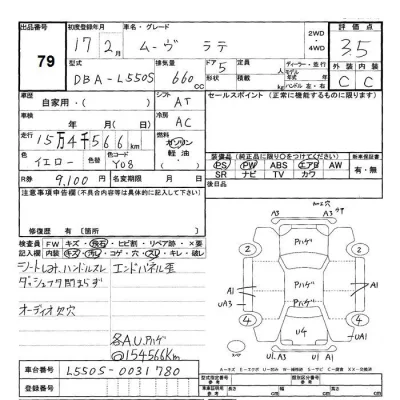 出品番号 初度登録年月 車名・グレード 2WD・4WD 評価点
79 17年2月 ムーヴ ラテ 3.5
型式 排気量 ドア 定員 ディーラー・並行 外装 内装
DBA-L550S 660cc 形状 5 積載 名 kg モデル年式 ハンドル 左・右 C C
車歴 自家用・ シフト AT セールスポイント (正常に機能するものに限ります)
車検 年 月 冷房 AC
走行 15万4千566km 燃料 ガソリン 軽油
色 イエロー 色替 色コード Y08 装備品 (純正品に限り○をつけてください) 新車保証書
PS PW ABS エアB AW 有・無
R券 9,100円 SR ナビ TV カワ
注意事項申告欄 (不具合内容等は具体的に記入して下さい) 後日品
修復歴 有〔箇所 〕
検査員 FW キズ・飛石・ヒビ割・リペア跡・×要
記入欄 内装 キズ・汚レ・コゲ・穴・スレ・キレ・破レ
シートしみ、ハンドルスレ エンドパネル歪
ダッシュフタ閉まらず
オーディオ欠穴
各A.U.Pハゲ
@154566Km
A3 A3
Pハゲ
2 2
A1 A1
UA3
Pハゲ
4 4
UA1
U4
U1.A3 U1 A1
車台番号 L550S-0031780
登録番号
型式指定番号 類別区分番号
参考 長さ cm 幅 cm 高さ cm